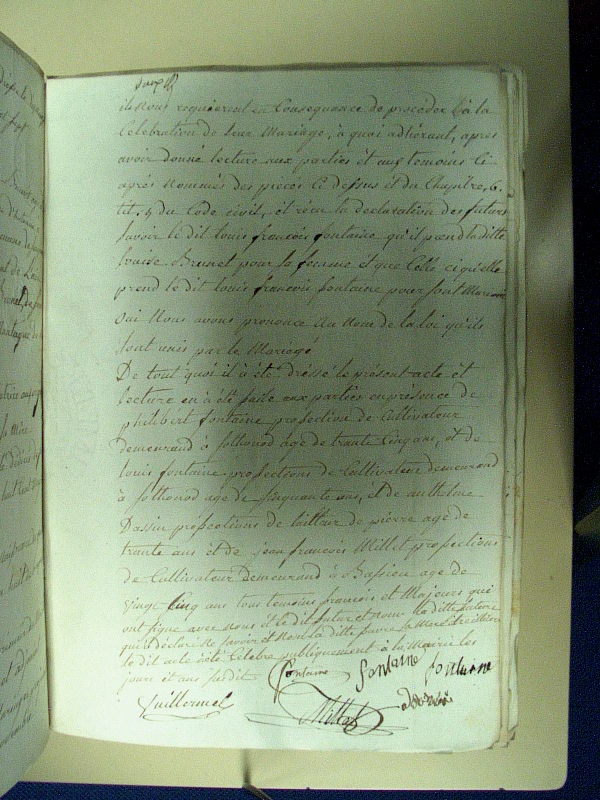 ils nous requierent en Consequance de proceder à la
Celebration de leur Mariage, à quoi adherant, apres
avoir donné lecture aux parties et aux temoins Ci-
aprés nommés des pieces Ci dessus et du Chapitre, 6.
tit, 5 du Code civil, et récu la declaration des futurs
Savoir le dit louis francois fontaine qu'il prend la ditte
louise Brunet pour sa femme et que Celle ci qu'elle
prend le dit louis francois fontaine pour sont Mari
oui Nous avons prononcé au Nom de la loi qu'ils
sont unis par le Mariagé
De tout quoi il à été dréssé le présent acte et
lecture en à été faite aux parties en présence de
philibért fontaine profection de Cultivateur
demeurand à Sothonod àge de trante Cinq ans, et de
louis fontaine profections de Cultivateur demeurand
à Sothonod age de Cinquante ans, et de anthelme
Dassin profections de tailleur de pierre age de
trante ans et de jean francois Millet profections
de Cultivateur demeurand à Bassieu age de
vingt Cinq ans tous temoins francois et Majeurs qui
ont signe avec Nous et le dit futur et Non la ditte future
qui à déclaré Ne savoir et Non la ditte
le dit acte publiquement à la Mairie les
jours et ans susdit fontaine fontaine fontaine
Guillermet Millet